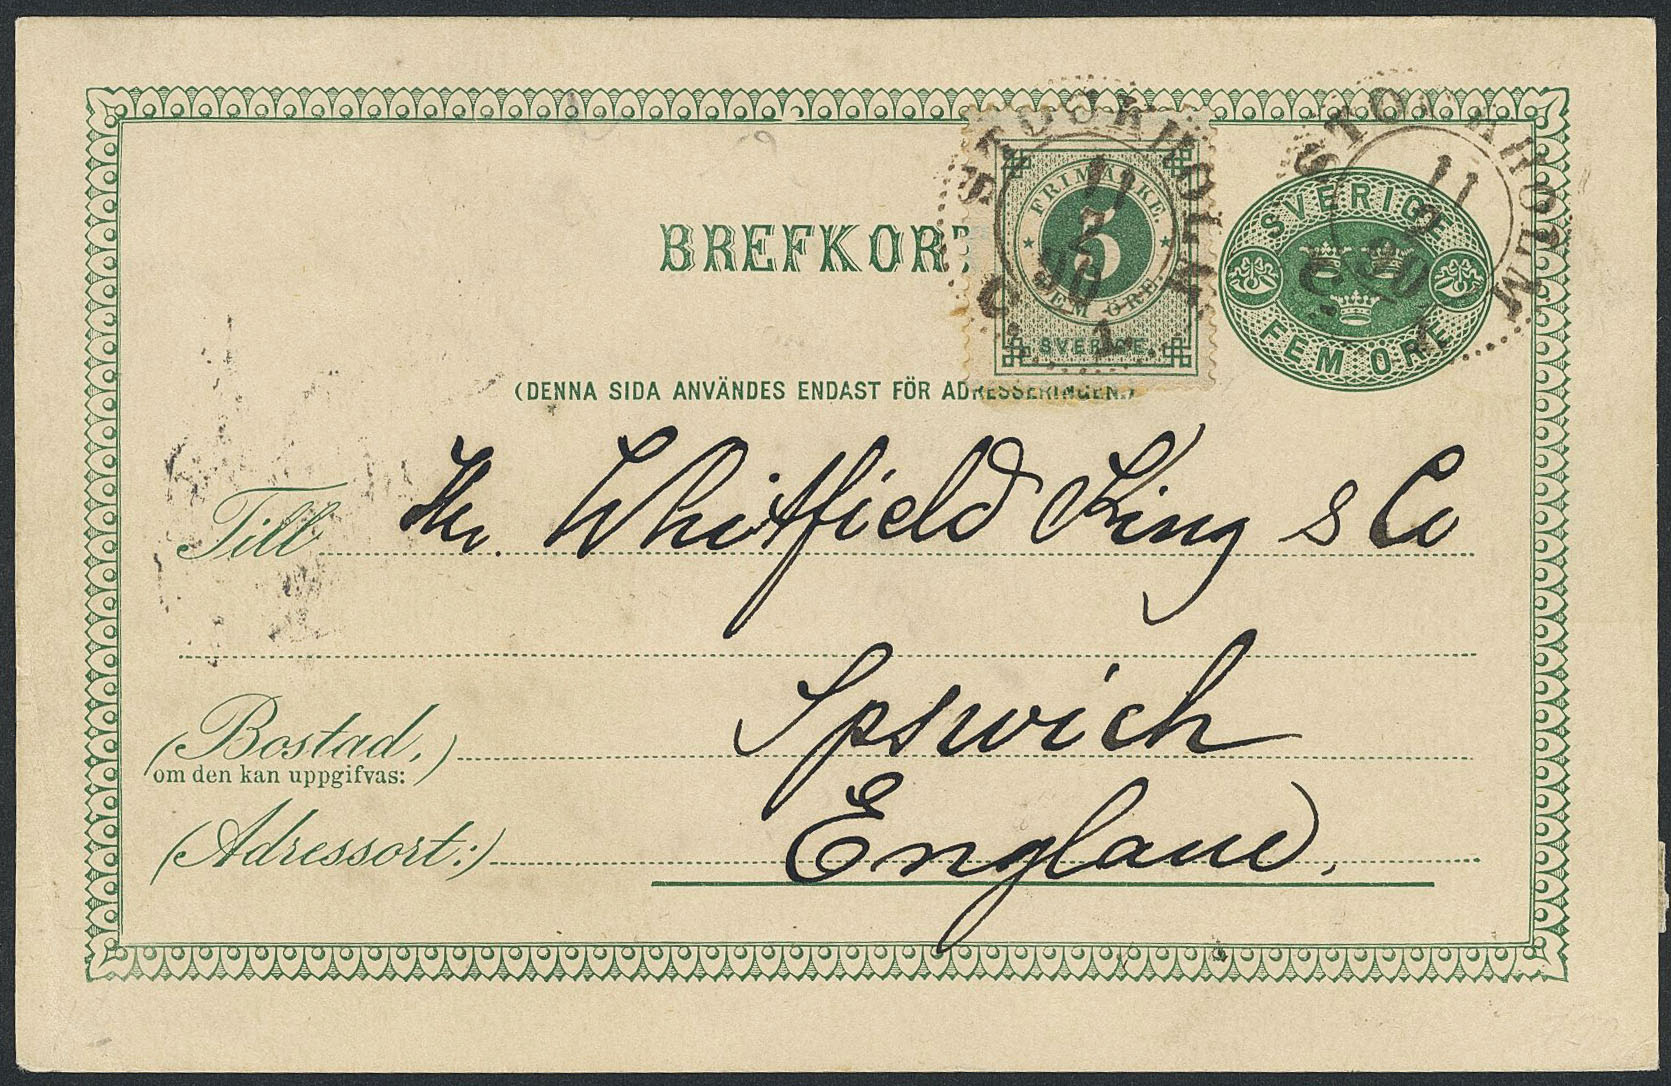 BREFKORT
STOCKHOLM
11
2
90
C. 1.
FRIMÄRKE
5
FEM ÖRE
SVERIGE
STOCKHOLM
11
2
90
C. 1.
SVERIGE
FEM ÖRE
(DENNA SIDA ANVÄNDES ENDAST FÖR ADRESSERINGEN.)
Till Hr. Whitfield King & Co
Ipswich
(Bostad,)
om den kan uppgifvas:
(Adressort:) England.